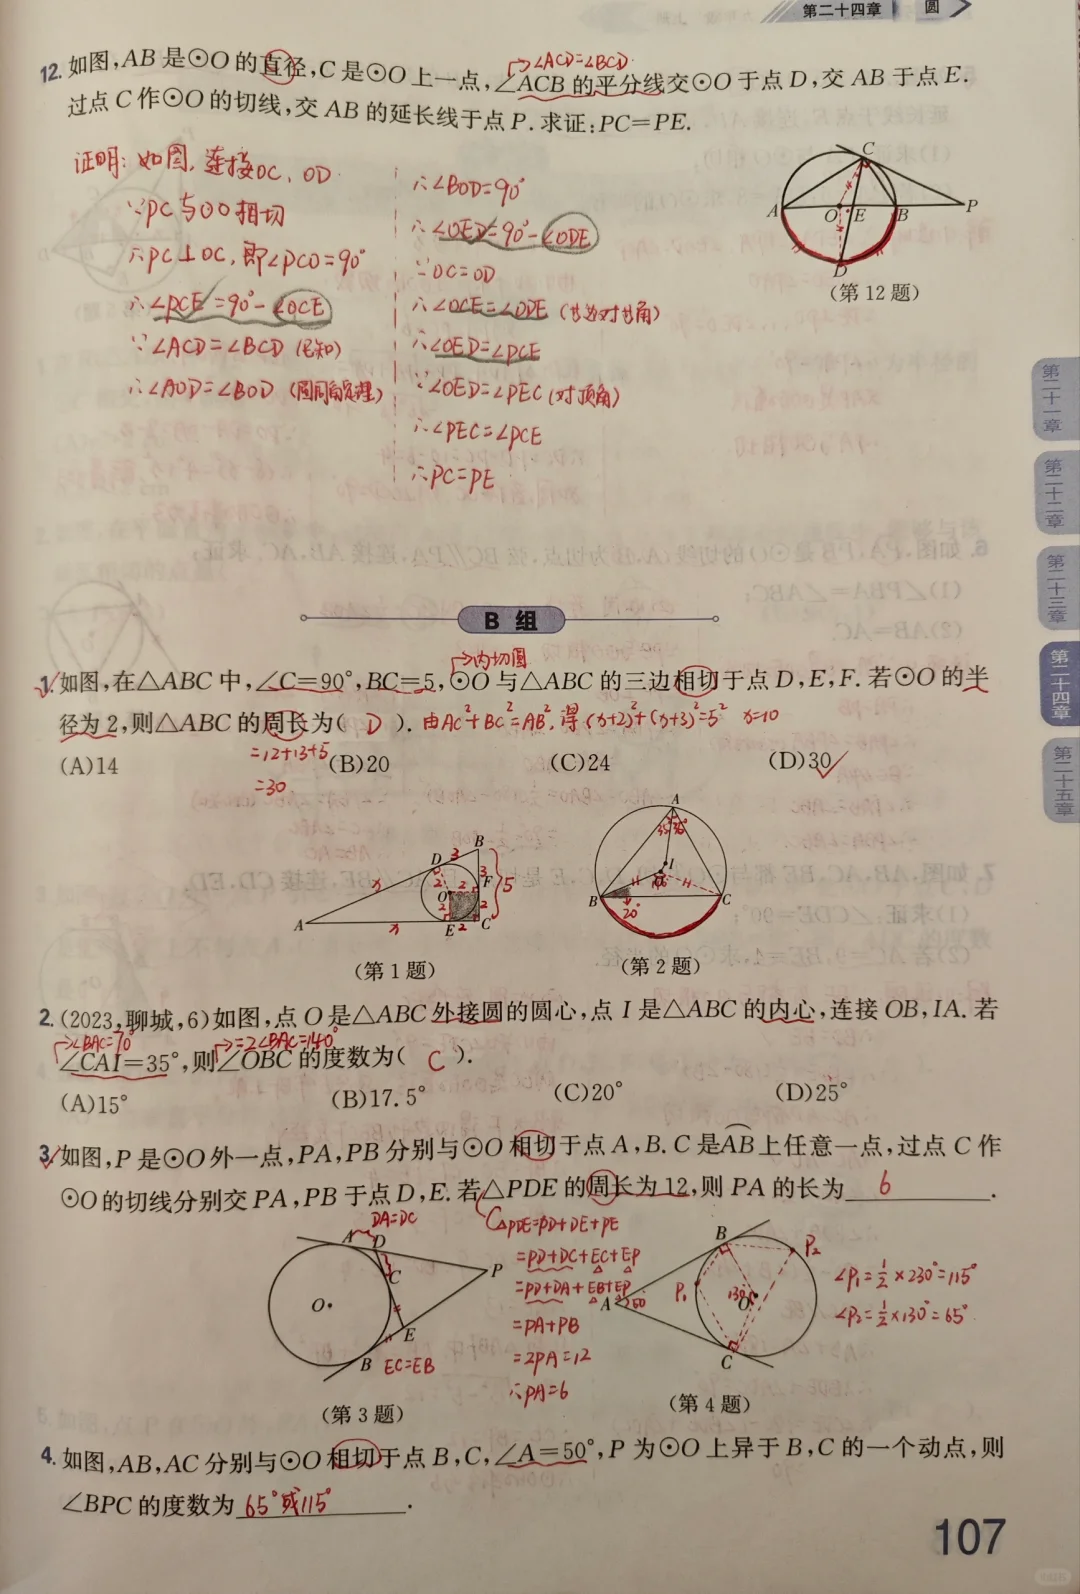 第二十四章 圆
12. 如图,AB是⊙O的直径,C是⊙O上一点,∠ACB的平分线交⊙O于点D,交AB于点E.
→∠ACD=∠BCD.
过点C作⊙O的切线,交AB的延长线于点P.求证:PC=PE.
证明:如图,连接OC、OD.
∵PC与⊙O相切
∴PC⊥OC,即∠PCO=90°
∴∠PCE=90°-∠OCE
∵∠ACD=∠BCD(已知)
∴∠AOD=∠BOD(圆周角定理)
∴∠BOD=90°
∴∠OED=90°-∠ODE
∵OC=OD
∴∠OCE=∠ODE(等边对等角)
∴∠OED=∠PCE
∵∠OED=∠PEC(对顶角)
∴∠PEC=∠PCE
∴PC=PE
A O E B P C D
(第12题)
第二十一章
第二十二章
第二十三章
第二十四章
第二十五章
B组
→内切圆
1. 如图,在△ABC中,∠C=90°,BC=5,⊙O与△ABC的三边相切于点D,E,F.若⊙O的半
径为2,则△ABC的周长为( D ). 由AC²+BC²=AB²,得(x+2)²+(x+3)²=5² x=10
=12+13+5
=30
(A)14 (B)20 (C)24 (D)30
A B C D E F O x x 3 3 2 2 2 2 2 5
(第1题)
A B C I O 35° 35° 20°
(第2题)
2. (2023,聊城,6)如图,点O是△ABC外接圆的圆心,点I是△ABC的内心,连接OB,IA.若
→∠BAC=70° →=2∠BAC=140°
∠CAI=35°,则∠OBC的度数为( C ).
(A)15° (B)17.5° (C)20° (D)25°
3. 如图,P是⊙O外一点,PA,PB分别与⊙O相切于点A,B.C是AB上任意一点,过点C作
⊙O的切线分别交PA,PB于点D,E.若△PDE的周长为12,则PA的长为 6 .
DA=DC
A D C P O E B
EC=EB
(第3题)
C△PDE=PD+DE+PE
=PD+DC+EC+EP
=PD+DA+EB+EP
=PA+PB
=2PA=12
∴PA=6
B P₂ P₁ A 50° 130° O C
∠P₁=½×230°=115°
∠P₂=½×130°=65°
(第4题)
4. 如图,AB,AC分别与⊙O相切于点B,C,∠A=50°,P为⊙O上异于B,C的一个动点,则
∠BPC的度数为 65°或115° .
107